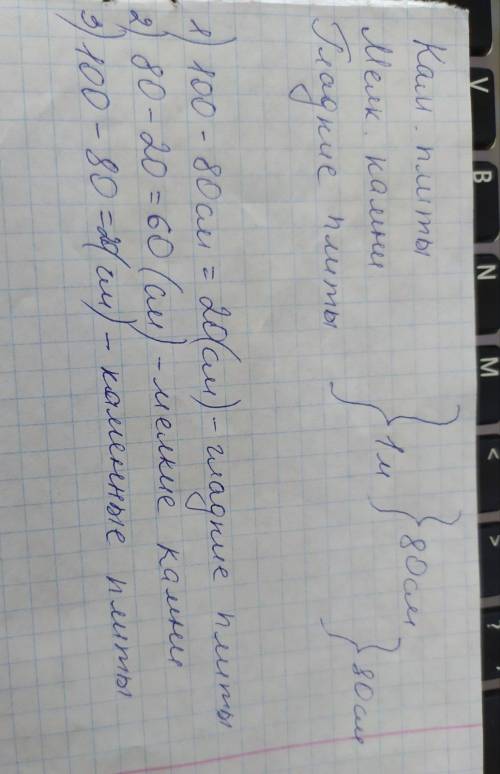 Кам. плиты
Мелк. камни
Гладкие плиты
} 1 м
} 80 см
} 80 см
1) 100 - 80 см = 20 (см) - гладкие плиты
2) 80 - 20 = 60 (см) - мелкие камни
3) 100 - 80 = 20 (см) - каменные плиты
V
B
N
M
<
>
?